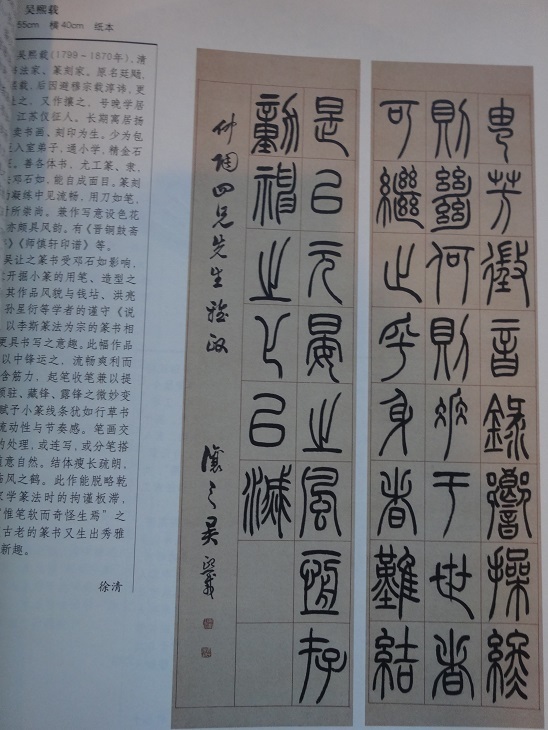 吴熙载
55cm 横40cm 纸本
吴熙载(1799～1870年)，清
书法家、篆刻家。原名廷飏，
熙载，后因避穆宗载淳讳，更
让之，又作攘之，号晚学居
江苏仪征人。长期寓居扬
卖书画、刻印为生。少为包
入室弟子，通小学，精金石
善各体书，尤工篆、隶，
邓石如，能自成面目。篆刻
凝练中见流畅，用刀如笔，
所崇尚。兼作写意设色花
亦颇具风韵。有《晋铜鼓斋
》《师慎轩印谱》等。
吴让之篆书受邓石如影响，
开掘小篆的用笔、造型之
其作品风貌与钱坫、洪亮
孙星衍等学者的谨守《说
以李斯篆法为宗的篆书相
更具书写之意趣。此幅作品
以中锋运之，流畅爽利而
含筋力，起笔收笔兼以提
顿驻、藏锋、露锋之微妙变
赋予小篆线条犹如行草书
流动性与节奏感。笔画交
的处理，或连写，或分笔搭
随意自然。结体瘦长疏朗，
临风之鹤。此作能脱略乾
家学篆法时的拘谨板滞，
“惟笔软而奇怪生焉”之
古老的篆书又生出秀雅
新趣。
徐清
芳徵音錄響操終
則絕何則垂于世者
可繼止乎身者難結
是㠯元晏止風恆存
動神止化㠯滅
仲陶四兄先生政
讓之吳熙載